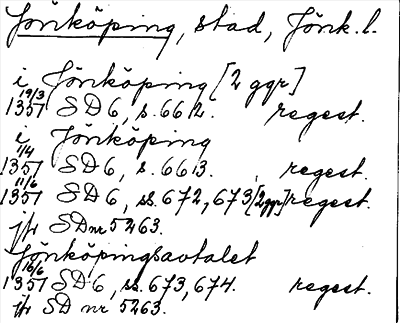 Jönköping, stad, Jönk.l.
i Jönköping [2 ggr]
19/3
1357 SD 6, s. 661 2. regest.
i Jönköping
1/4
1357 SD 6, s. 661 3. regest.
11/6
1357 SD 6, ss. 672, 673 [2 ggr] regest.
jfr SD nr 5263.
Jönköpingsavtalet
16/6
1357 SD 6, ss. 673, 674. regest.
jfr SD nr 5263.